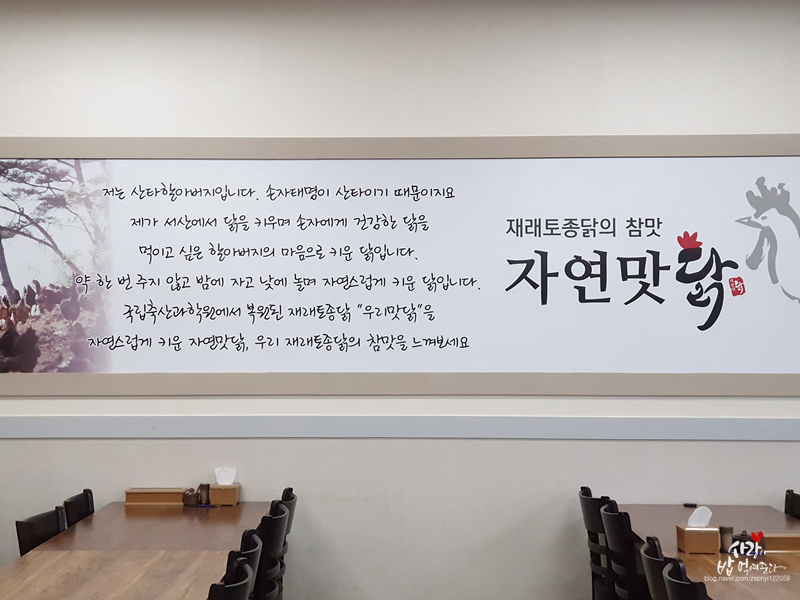 저는 산타할아버지입니다. 손자태명이 산타이기 때문이지요
제가 서산에서 닭을 키우며 손자에게 건강한 닭을
먹이고 싶은 할아버지의 마음으로 키운 닭입니다.
약 한 번 주지 않고 밤에 자고 낮에 놀며 자연스럽게 키운 닭입니다.
국립축산과학원에서 복원된 재래토종닭 "우리맛닭"을
자연스럽게 키운 자연맛닭, 우리 재래토종닭의 참맛을 느껴보세요
재래토종닭의 참맛
자연맛닭
사랑이
밥 먹여준다
blog.naver.com/zephyr122059